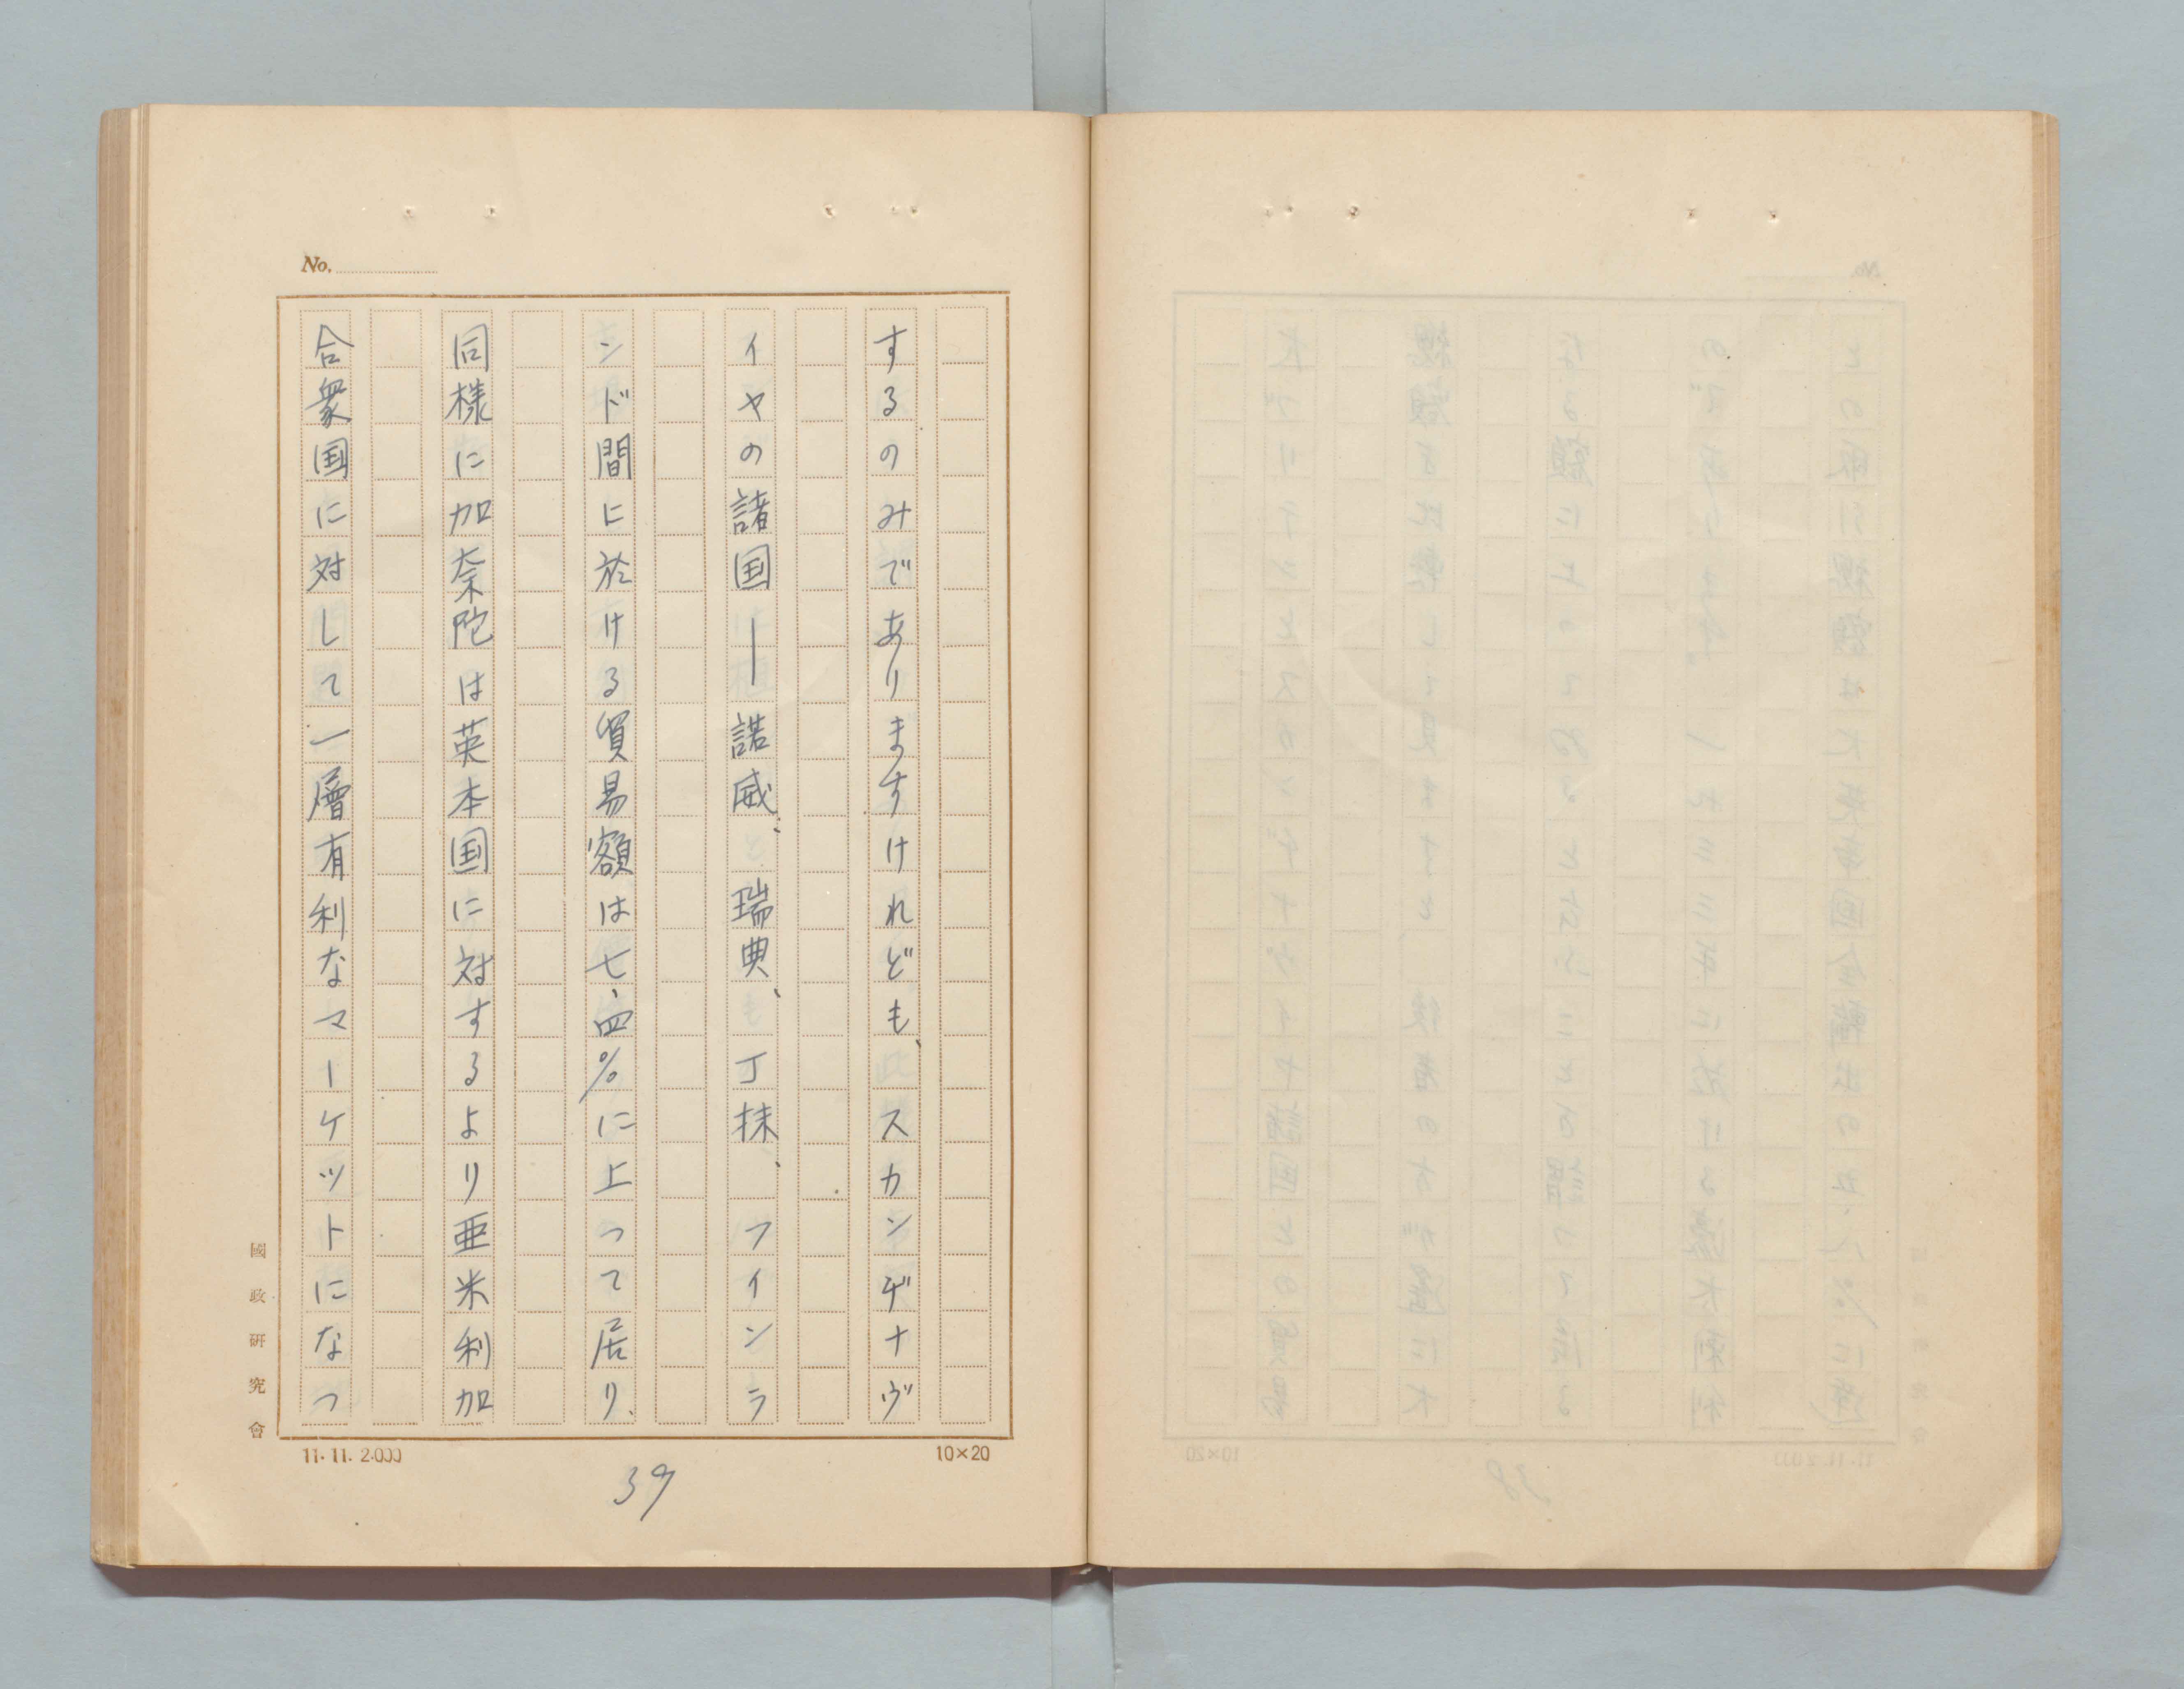 No.
するのみでありますけれども、スカンヂナヴ
イヤの諸国―諾威、瑞典、丁抹、フインラ
ンド間に於ける貿易額は七、四%に上つて居り、
同様に加奈陀は英本国に対するより亜米利加
合衆国に対して一層有利なマーケツトになつ
國政研究會
11.11.2.000
10×20
39